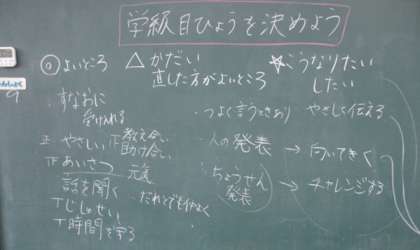 学級目ひょうを決めよう
◎よいところ
すなおに
受け入れる
正 やさしい、正 教え合い 助け合い
正 あいさつ 元気
話を聞く
T じしせい
T 時間を守る
だれとでも仲よく
△かだい
直した方がよいところ
・つよく言うときあり
・人の発表 → 向いてきく
・ちょうせん
発表 → チャレンジする
☆こうなりたい
したい
やさしく伝える